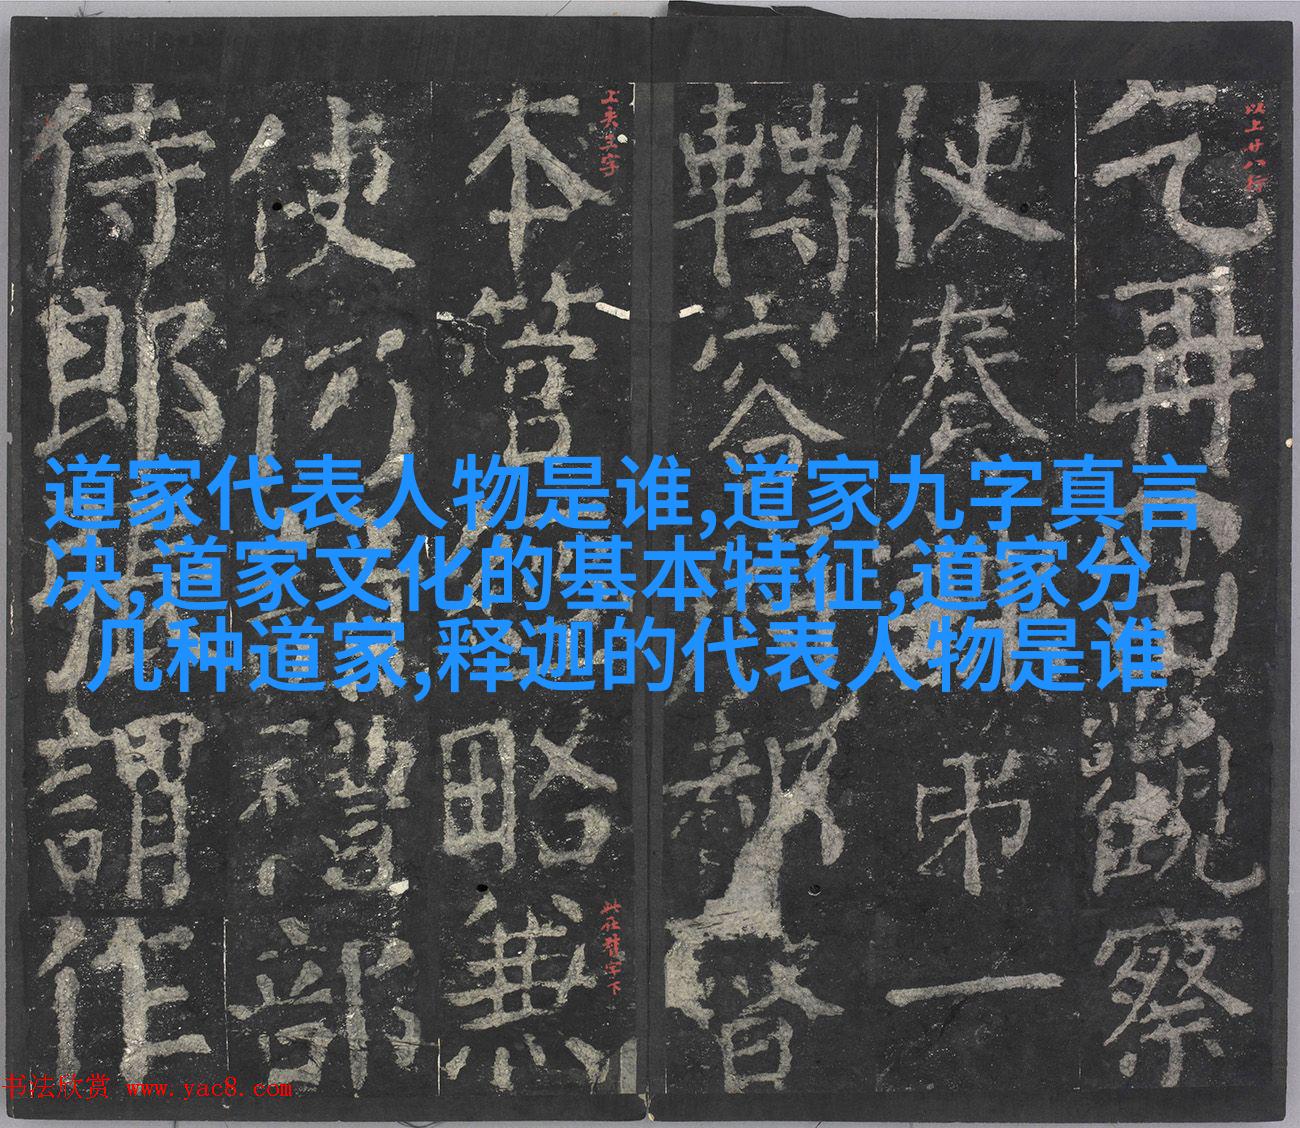 乞再
使奏
以上廿八行
轉
本管
上夾三字
使
侍郎
道家代表人物是谁,道家九字真言
决,道家文化的基本特征,道家分
几种道家,释迦的代表人物是谁
觀察
弟一
報
督
略無
此在精字下
禮部
謂作
书法欣赏 www.yac8.com